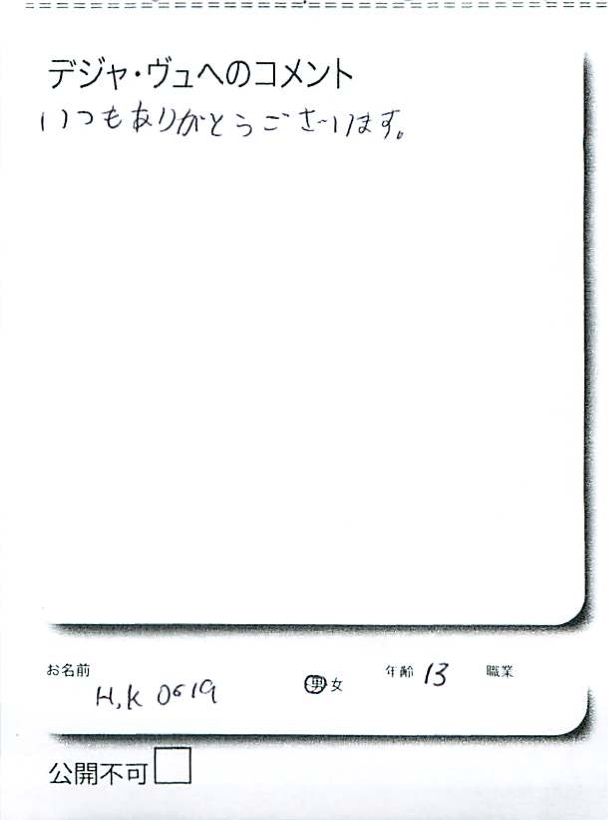 デジャ・ヴュへのコメント
いつもありがとうございます。
お名前 H,K 0619 男女 年齢 13 職業
公開不可